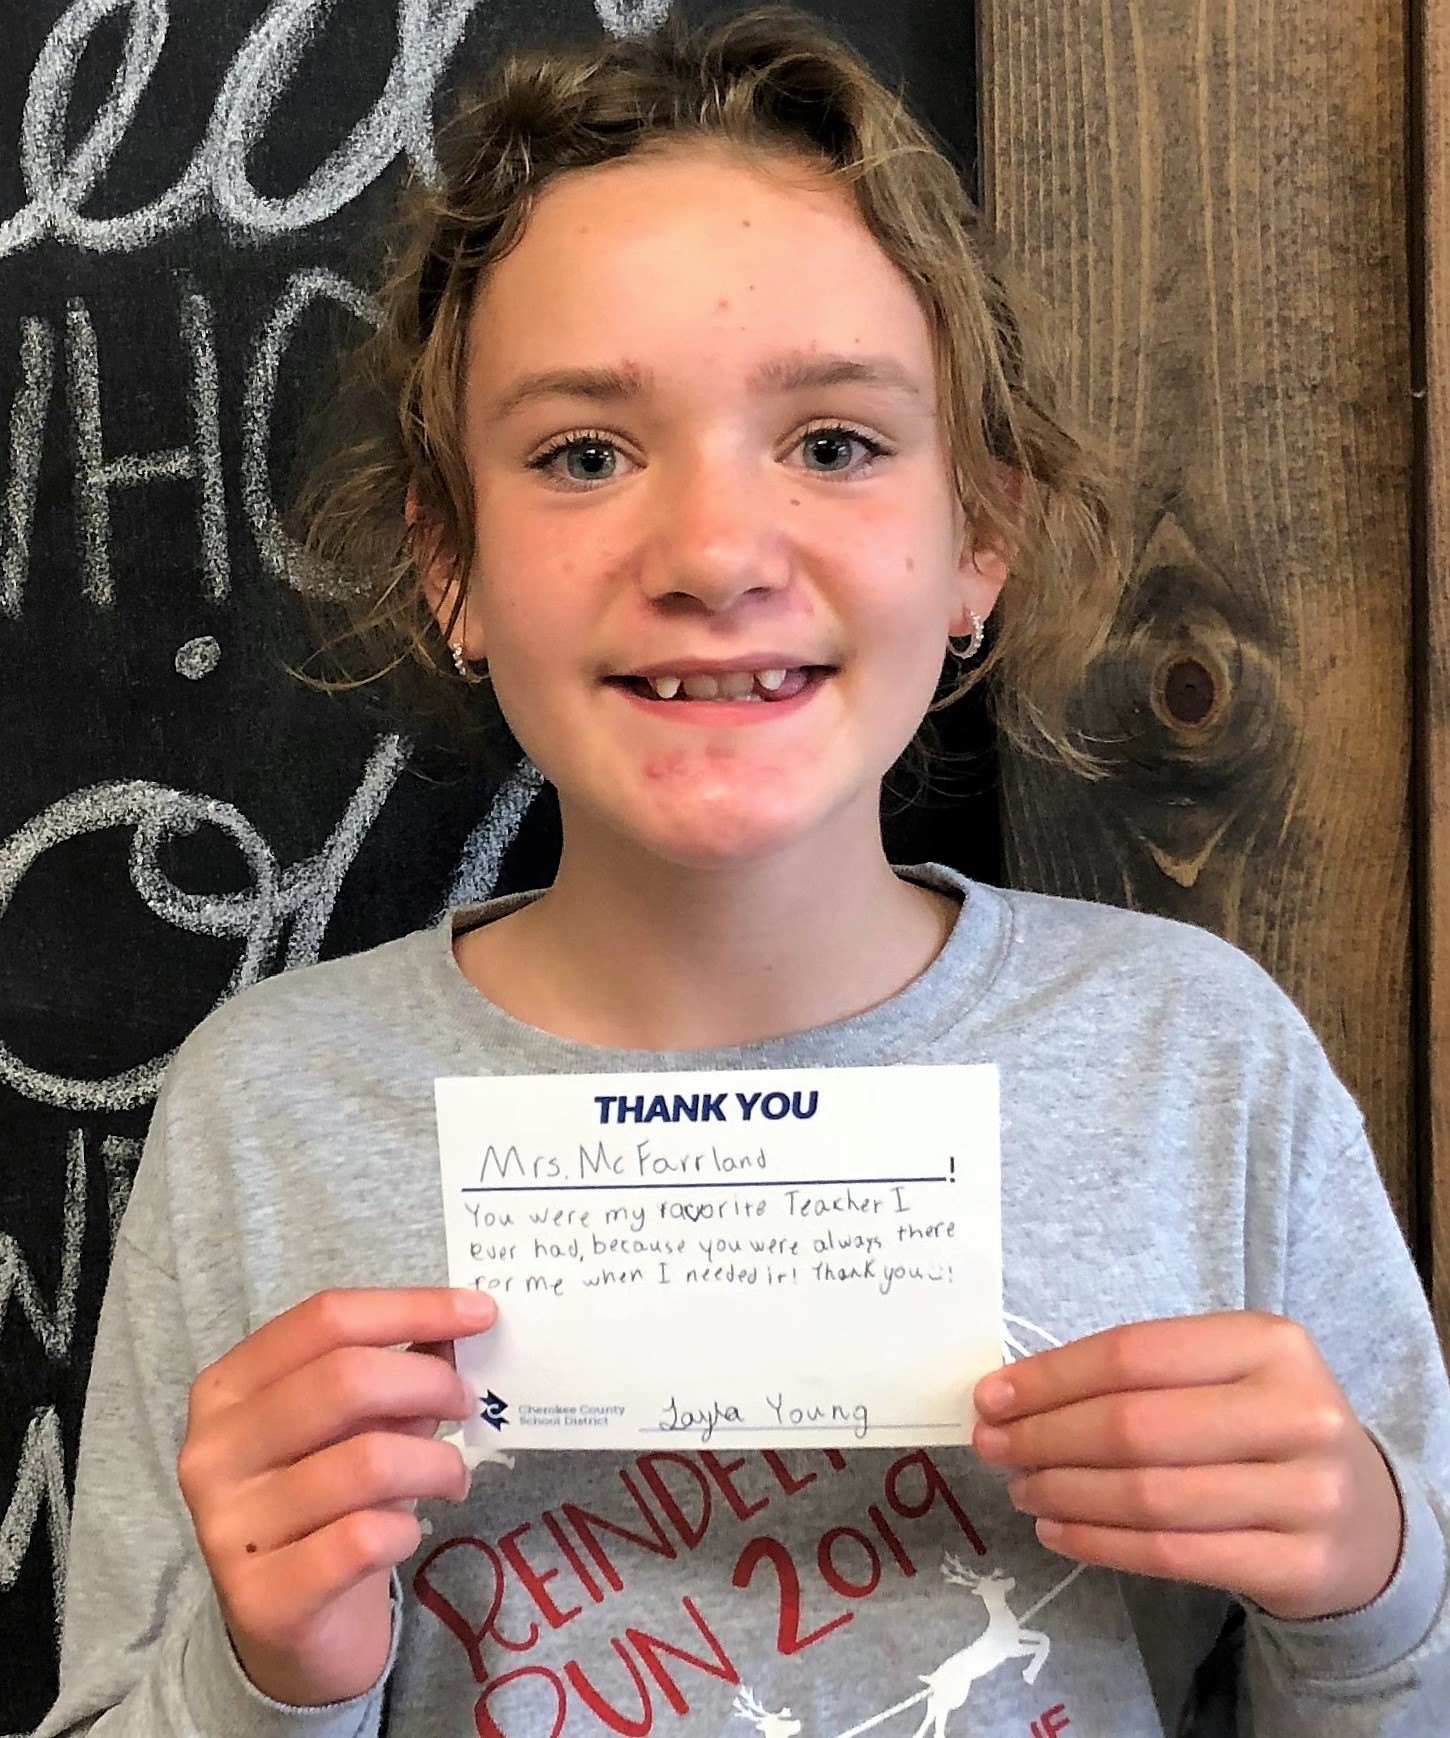 THANK YOU
Mrs. McFarrland!
You were my favorite Teacher I
ever had, because you were always there
for me when I needed it! Thank you!
Cherokee County
School District
Layla Young
REINDEER
RUN 2019